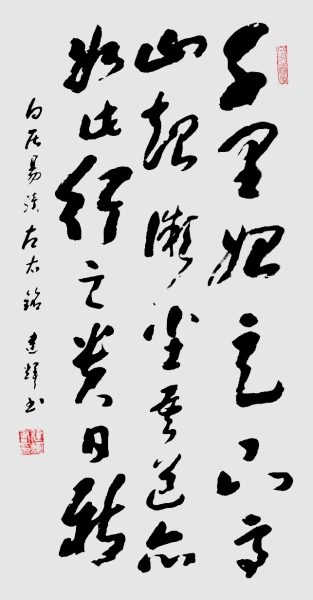 千里始足下高
山起微尘吾道亦
如此行之贵日新
白居易续左右铭 建辉书